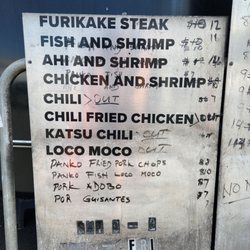 FURIKAKE STEAK 12
FISH AND SHRIMP 11
AHI AND SHRIMP 12
CHICKEN AND SHRIMP
CHILI > OUT 7
CHILI FRIED CHICKEN > OUT
KATSU CHILI OUT
LOCO MOCO OUT
PANKO FRIED PORK CHOPS
PANKO FISH LOCO MOCO $10
PORK ADOBO $7
POR GUISANTES $7